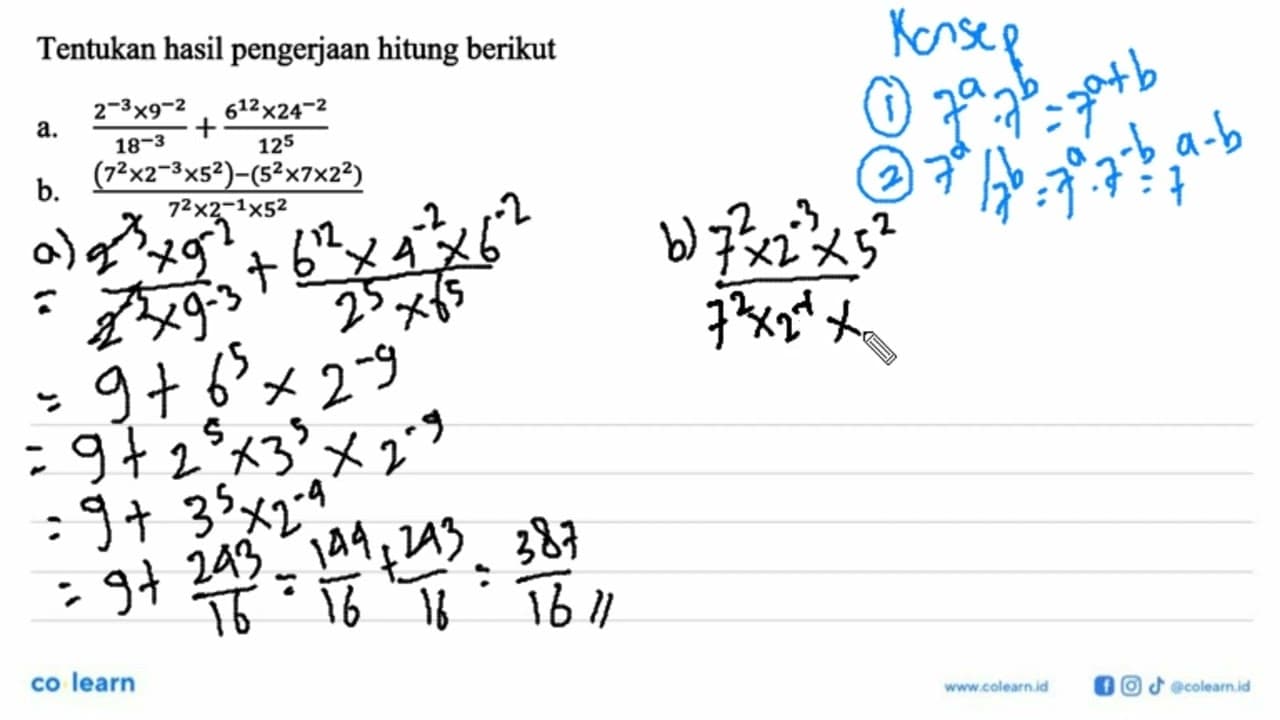 Tentukan hasil pengerjaan hitung berikut
a. (2⁻³×9⁻²)/(18⁻³) + (6¹²×24⁻²)/(12⁵)
b. ((7²×2⁻³×5²)−(5²×7×2²))/(7²×2⁻¹×5²)
Konsep
① 7ᵃ . 7ᵇ = 7ᵃ⁺ᵇ
② 7ᵃ / 7ᵇ = 7ᵃ . 7⁻ᵇ = 7ᵃ⁻ᵇ
a)
= (2⁻³ × 9⁻²)/(2⁻³ × 9⁻³) + (6¹² × 4⁻² × 6⁻²)/(2⁵ × 6⁵)
= 9 + 6⁵ × 2⁻⁹
= 9 + 2⁵ × 3⁵ × 2⁻⁹
= 9 + 3⁵ × 2⁻⁴
= 9 + 243/16 = 144/16 + 243/16 = 387/16 //
b) (7² × 2⁻³ × 5²)/(7² × 2⁻¹ ×
co learn
www.colearn.id
@colearn.id